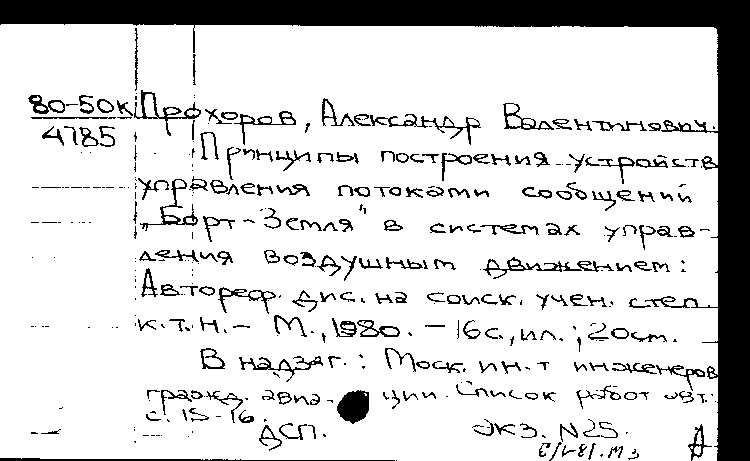 80-50к Прохоров, Александр Валентинович.
4785
Принципы построения устройств
управления потоками сообщений
„Борт-Земля" в системах управ-
ления воздушным движением:
Автореф. дис. на соиск. учен. степ.
к.т.н. - М., 1980. - 16с., ил.; 20см.
В надзаг.: Моск. ин-т инженеров
гражд. авиа- ции. Список работ авт.:
с. 15-16.
ДСП. Экз. N25.
А